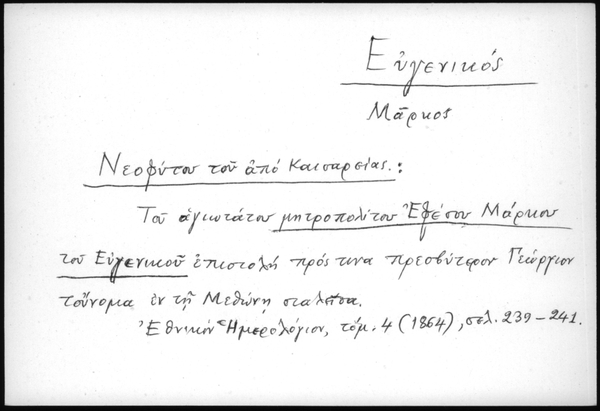 Εὐγενικός
Μᾶρκος
Νεοφύτου τοῦ ἀπό Καισαρείας.:
Τοῦ ἁγιωτάτου μητροπολίτου Ἐφέσου Μάρκου
τοῦ Εὐγενικοῦ ἐπιστολή πρός τινα πρεσβύτερον Γεώργιον
τοὔνομα ἐν τῇ Μεθώνῃ σταλεῖσα.
Ἐθνικόν Ἡμερολόγιον, τόμ. 4 (1864), σελ. 239-241.